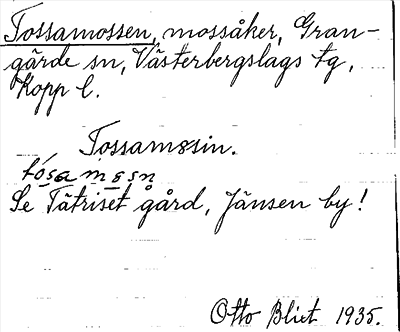 Tossamossen, mossåker, Gran-
gärde sn, Västerbergslags tg,
Kopp l.
Tossamosin.
tósamosn
Se Tätriset gård, Jänsen by!
Otto Blixt 1935.